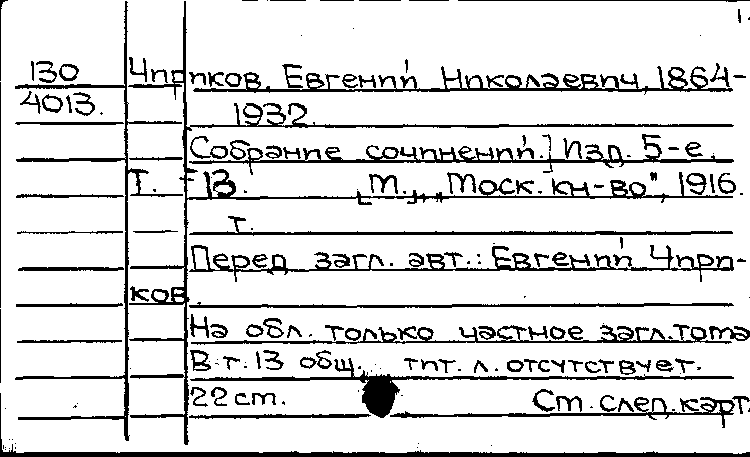 1.
130 Чириков, Евгений Николаевич, 1864-
4013. 1932.
Собрание сочинений.] Изд. 5-е.
Т. - 13. [М.], „Моск. кн-во", 1916.
т.
Перед загл. авт.: Евгений Чири-
ков.
На обл. только частное загл. тома
В т. 13 общ. тит. л. отсутствует.
22 см. См. след. карт.